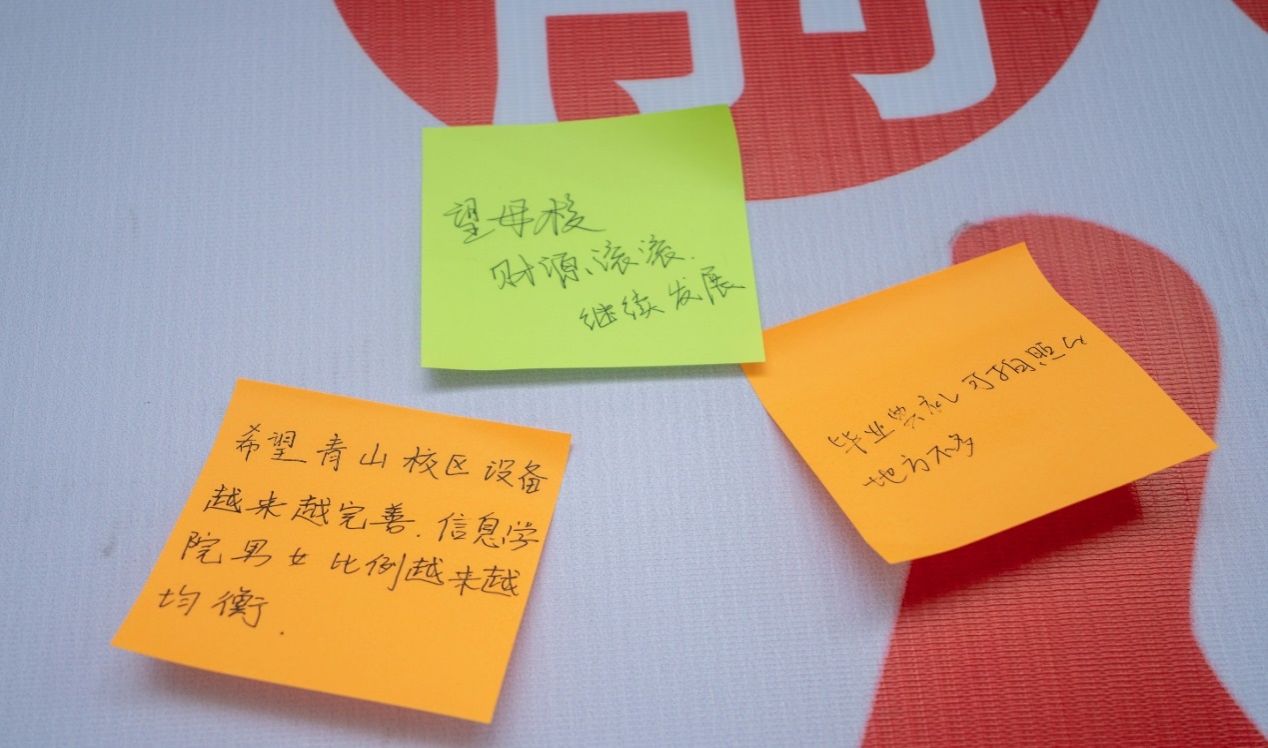 望母校
财源滚滚.
继续发展
希望青山校区设备
越来越完善.信息学
院男女比例越来越
均衡.
毕业典礼可拍照的
地方不多